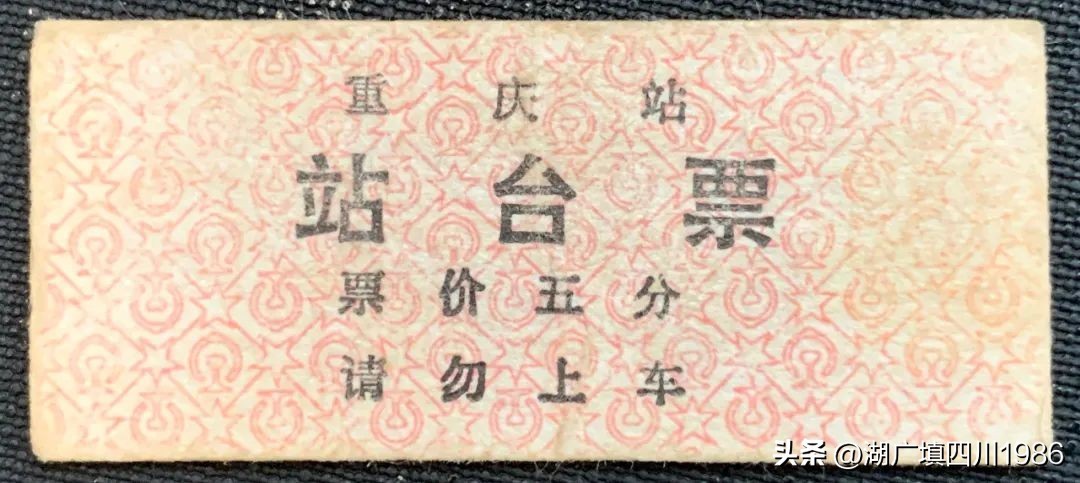 重庆站
站台票
票价五分
请勿上车
头条 @湖广填四川1986